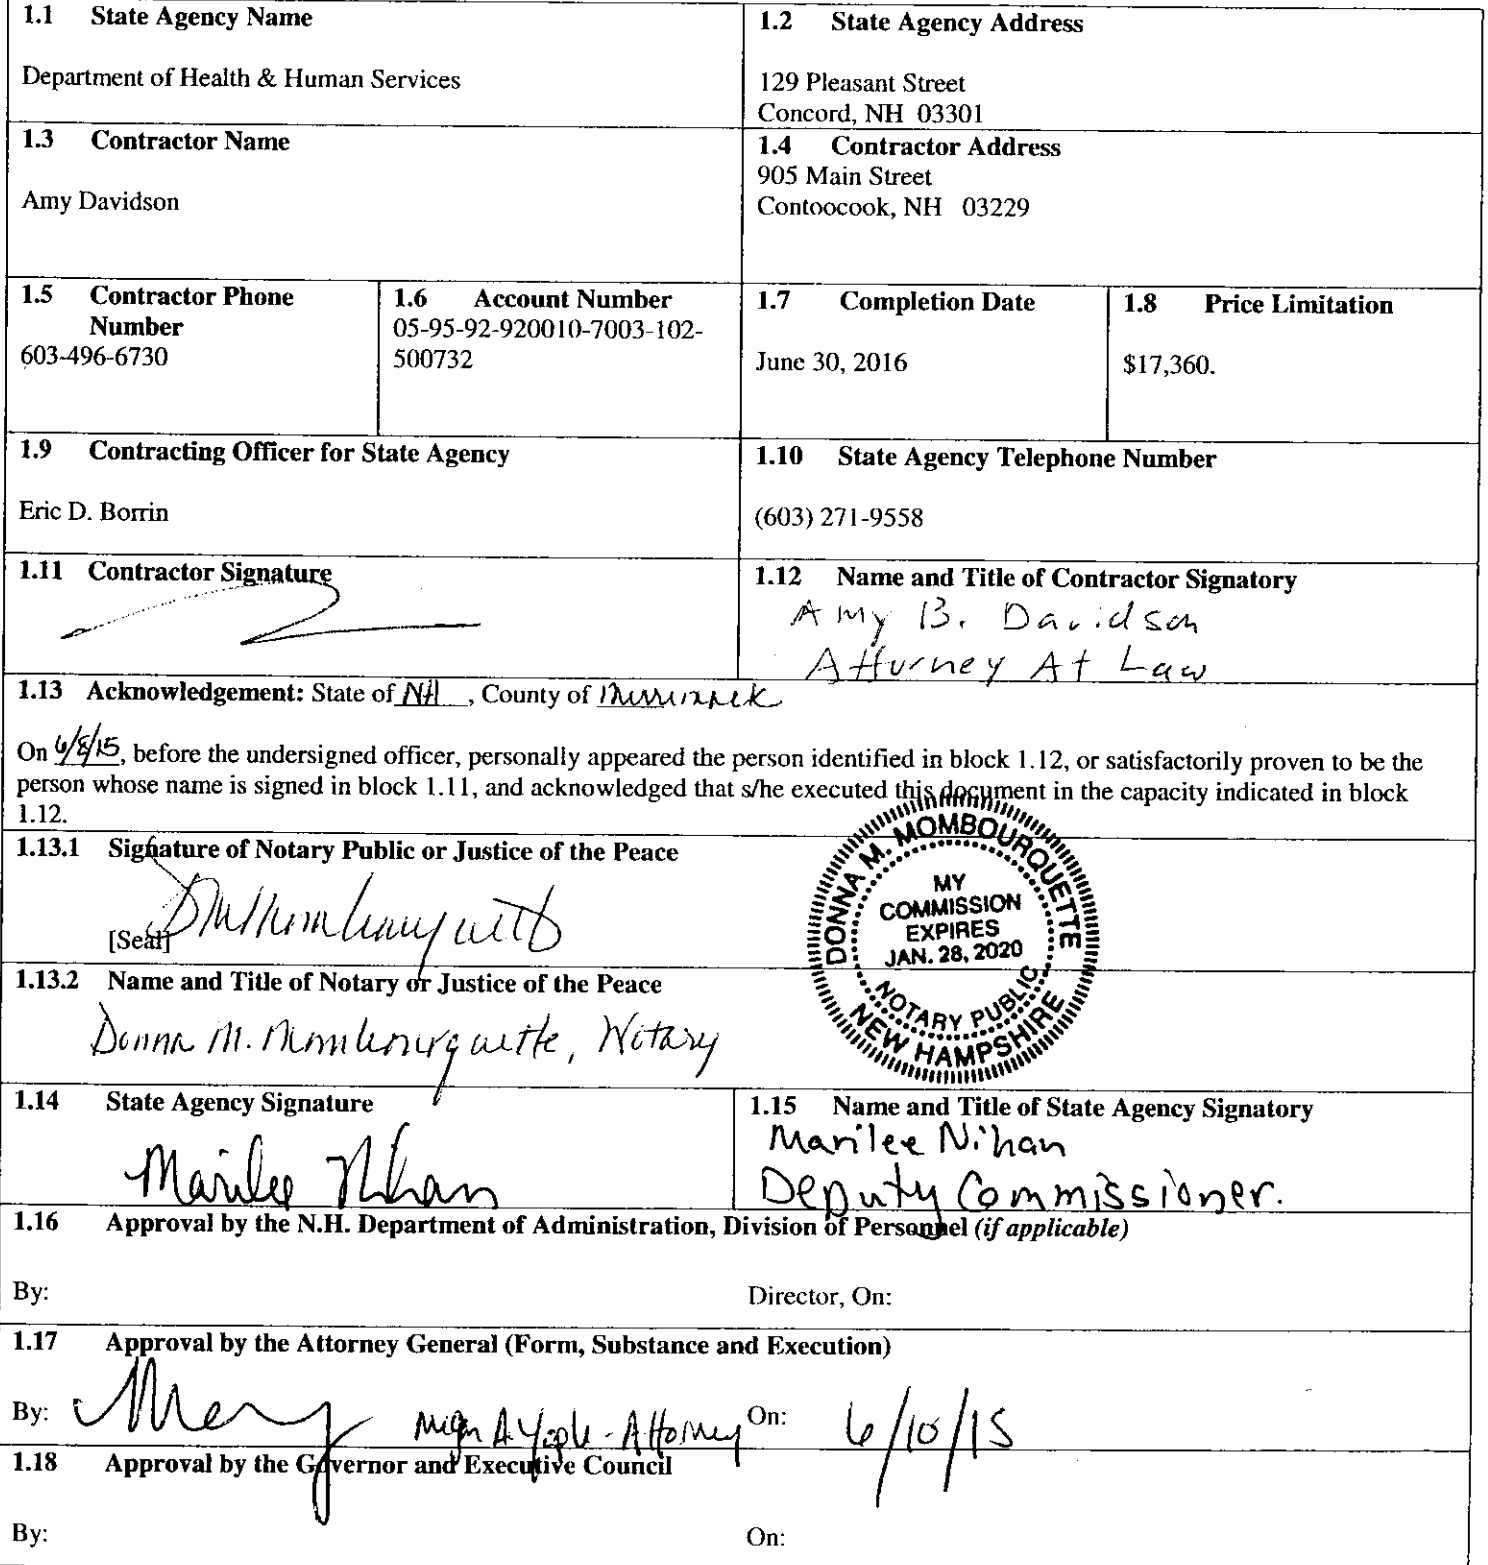 1.1 State Agency Name
Department of Health & Human Services
1.2 State Agency Address
129 Pleasant Street
Concord, NH 03301
1.3 Contractor Name
Amy Davidson
1.4 Contractor Address
905 Main Street
Contoocook, NH 03229
1.5 Contractor Phone
Number
603-496-6730
1.6 Account Number
05-95-92-920010-7003-102-
500732
1.7 Completion Date
June 30, 2016
1.8 Price Limitation
$17,360.
1.9 Contracting Officer for State Agency
Eric D. Borrin
1.10 State Agency Telephone Number
(603) 271-9558
1.11 Contractor Signature
1.12 Name and Title of Contractor Signatory
Amy B. Davidson
Attorney At Law
1.13 Acknowledgement: State of NH , County of Merrimack
On 6/8/15, before the undersigned officer, personally appeared the person identified in block 1.12, or satisfactorily proven to be the
person whose name is signed in block 1.11, and acknowledged that s/he executed this document in the capacity indicated in block
1.12.
1.13.1 Signature of Notary Public or Justice of the Peace
[Seal]
DONNA M. MOMBOURQUETTE
MY
COMMISSION
EXPIRES
JAN. 28, 2020
NOTARY PUBLIC
NEW HAMPSHIRE
1.13.2 Name and Title of Notary or Justice of the Peace
Donna M. Mombourquette, Notary
1.14 State Agency Signature
Marilee Nihan
1.15 Name and Title of State Agency Signatory
Marilee Nihan
Deputy Commissioner.
1.16 Approval by the N.H. Department of Administration, Division of Personnel (if applicable)
By: Director, On:
1.17 Approval by the Attorney General (Form, Substance and Execution)
By: - Attorney On: 6/10/15
1.18 Approval by the Governor and Executive Council
By: On: